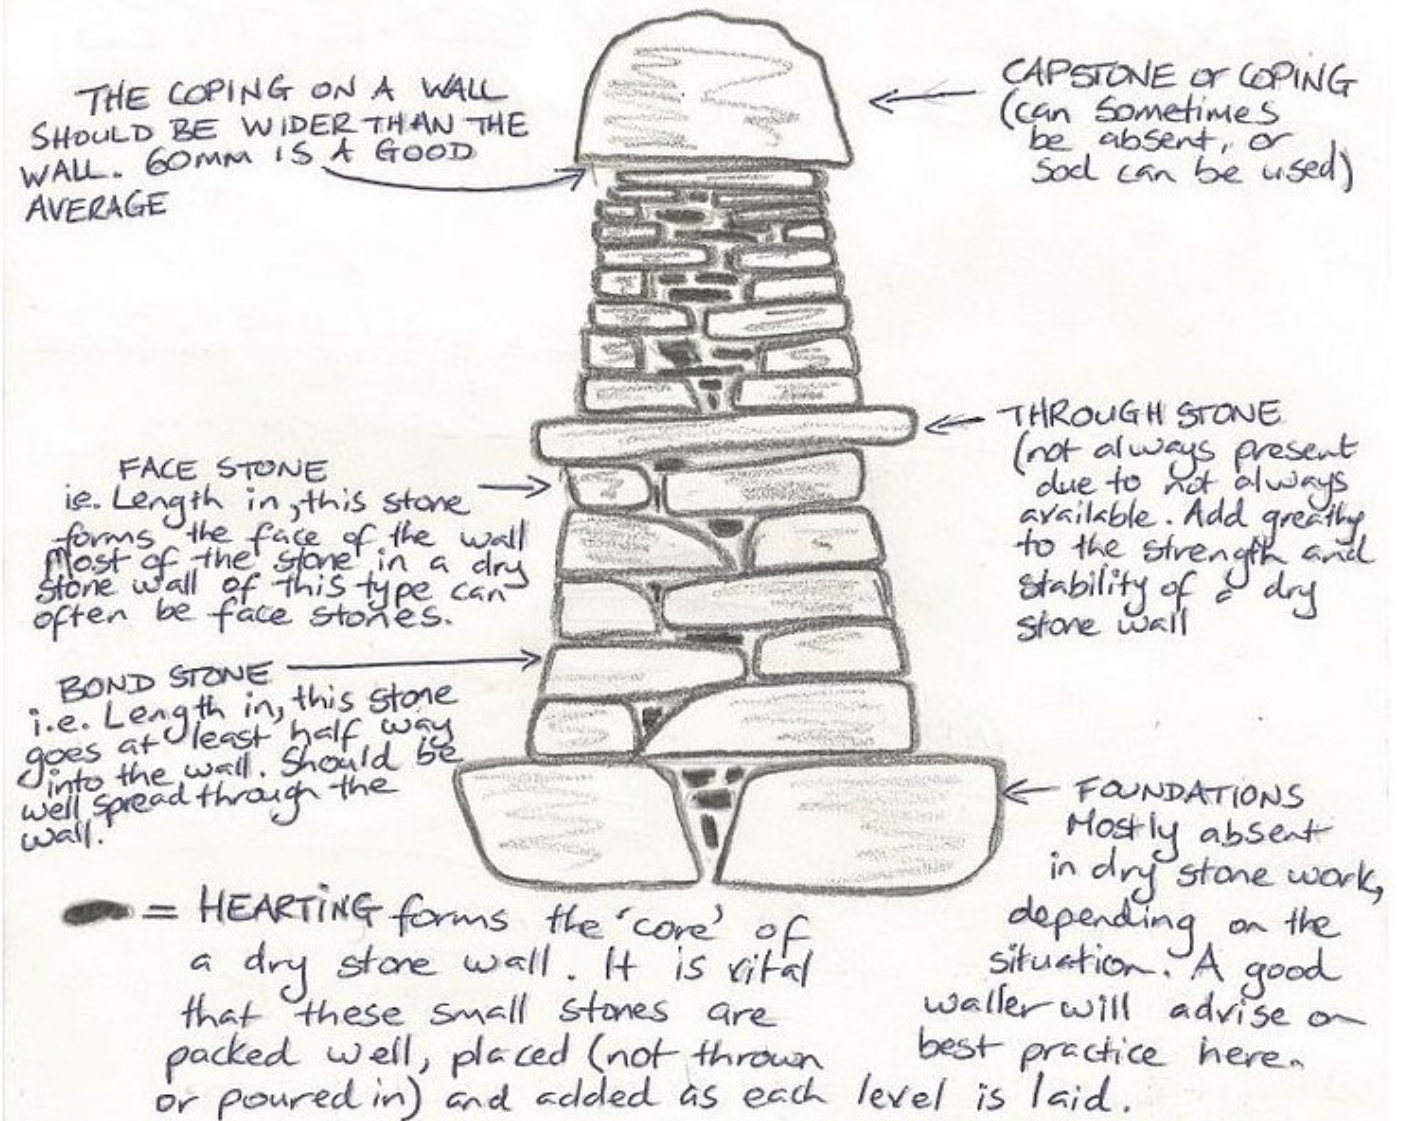 THE COPING ON A WALL
SHOULD BE WIDER THAN THE
WALL. 60MM IS A GOOD
AVERAGE
CAPSTONE or COPING
(can sometimes
be absent, or
sod can be used)
THROUGH STONE
(not always present
due to not always
available. Add greatly
to the strength and
stability of a dry
stone wall
FACE STONE
ie. Length in, this stone
forms the face of the wall
Most of the stone in a dry
stone wall of this type can
often be face stones.
BOND STONE
i.e. Length in, this stone
goes at least half way
into the wall. Should be
well spread through the
wall.
FOUNDATIONS
Mostly absent
in dry stone work,
depending on the
situation. A good
waller will advise on
best practice here.
= HEARTING forms the 'core' of
a dry stone wall. It is vital
that these small stones are
packed well, placed (not thrown
or poured in) and added as each level is laid.